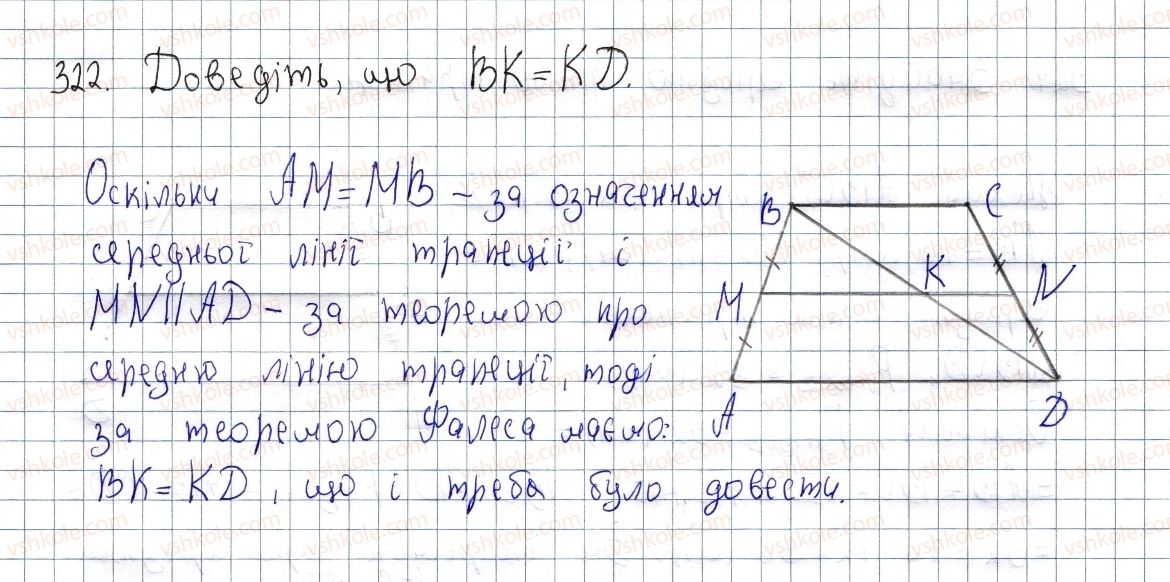 322. Доведіть, що BK = KD.
Оскільки AM = MB – за означенням
середньої лінії трапеції і
MN || AD – за теоремою про
середню лінію трапеції, тоді
за теоремою Фалеса маємо:
BK = KD, що і треба було довести.
B C
M K N
A D
vshkole.com